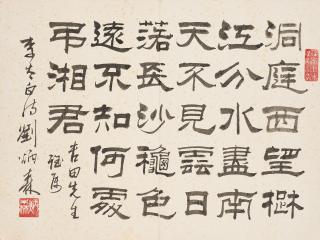 洞庭西望楚
江分水盡南
天不見雲日
落長沙龝色
遠不知何處
弔湘君
吉田先生
李太白诗劉炳森